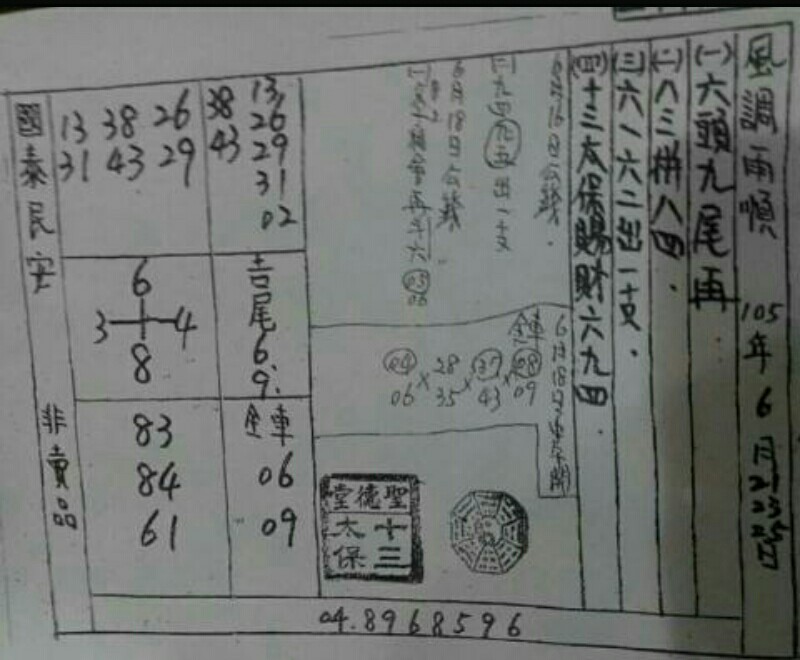 風調雨順 105年6月
(一)六頭九尾再
(二)八三拼八四.
(三)六八六二出一支.
(四)十三太保賜財六九四.
6月16日公錢.
九四九五出一支
6月18日公錢
03
06
6月18日
全車
04 28 37 08
06 35 43 09
聖德堂
十三
太保
13 26 29 31 02
38 43
吉尾 6. 9.
全車
06
09
13 38 26
31 43 29
6
3 4
8
83
84
61
國泰民安 非賣品
04.8968596